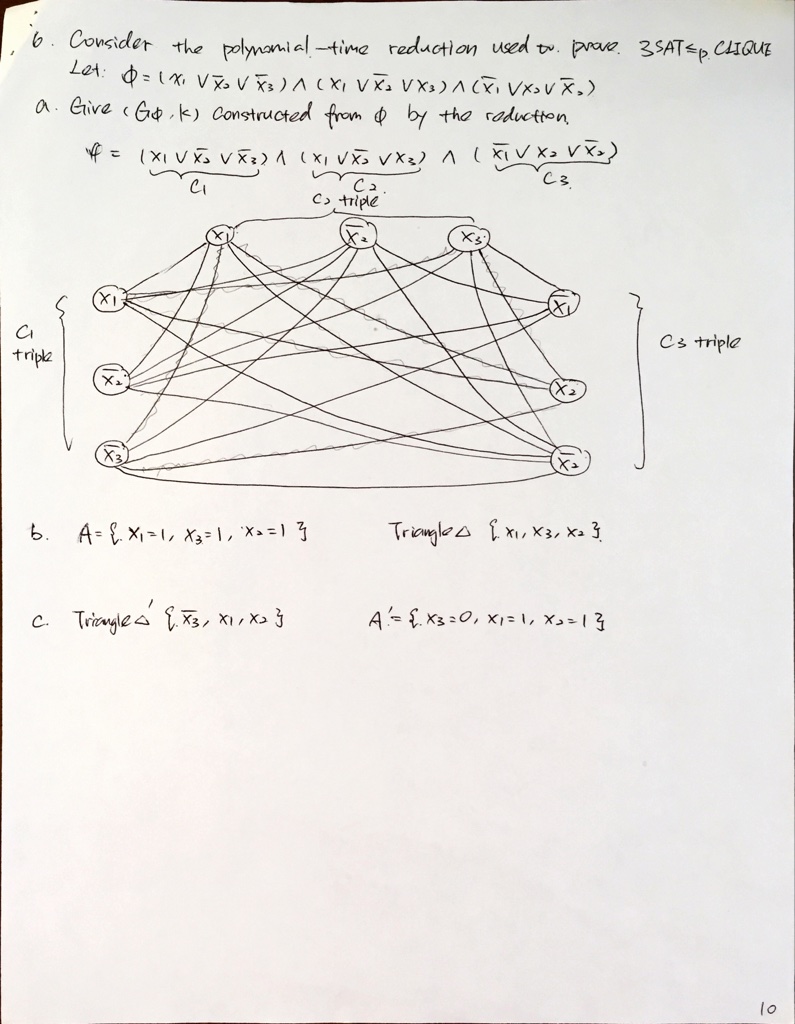 6. Consider the polynomial-time reduction used to prove 3SAT ≤p CLIQUE
Let: Φ = (x₁ ∨ x̅₂ ∨ x̅₃) ∧ (x₁ ∨ x̅₂ ∨ x₃) ∧ (x̅₁ ∨ x₂ ∨ x̅₂)
a. Give (GΦ, k) constructed from Φ by the reduction.
φ = (x₁ ∨ x̅₂ ∨ x̅₃) ∧ (x₁ ∨ x̅₂ ∨ x₃) ∧ (x̅₁ ∨ x₂ ∨ x̅₂)
C₁ C₂ C₃
C₂ triple
x₁ x̅₂ x₃
x₁ x̅₁
C₁ triple
C₃ triple
x̅₂ x₂
x̅₃ x̅₂
b. A = {x₁=1, x₃=1, x₂=1} Triangle △ {x₁, x₃, x₂}
c. Triangle △' {x̅₃, x₁, x₂} A' = {x₃=0, x₁=1, x₂=1}
10